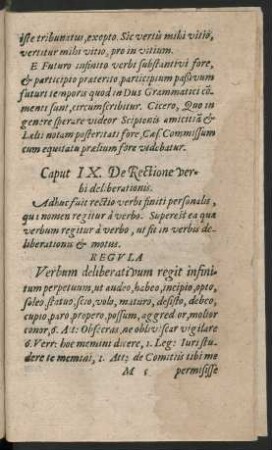 iste tribunatus, exopto. Sic vertis mihi vitio,
vertitur mihi vitio, pro in vitium.
E Futuro infinito verbi substantivi fore,
& participio præterito participium passivum
futuri temporis quod in Dus Grammatici cō-
menti sunt, circumscribitur. Cicero, Quo in
genere sperare videor Scipionis amicitiā &
Lælii notam posteritati fore, Cæs. Commissum
cum equitatu prælium fore videbatur.
Caput IX. De Rectione ver-
bi deliberationis.
Adhuc fuit rectio verbi finiti personalis,
qui nomen regitur à verbo. Superest ea qua
verbum regitur à verbo, ut fit in verbis de-
liberationis & motus.
REGVLA
Verbum deliberativum regit infini-
tum perpetuum, ut audeo, habeo, incipio, opto,
soleo, statuo, scio, volo, maturo, desisto, debeo,
cupio, paro, propero, possum, aggredior, molior
conor, 6. Att: Obsecras, ne obliviscar vigilare
6. Verr: hoc memini dicere, 1. Leg: Juri stu-
dere te memini, 1. Att: de Comitiis tibi me
M 5 permisisse